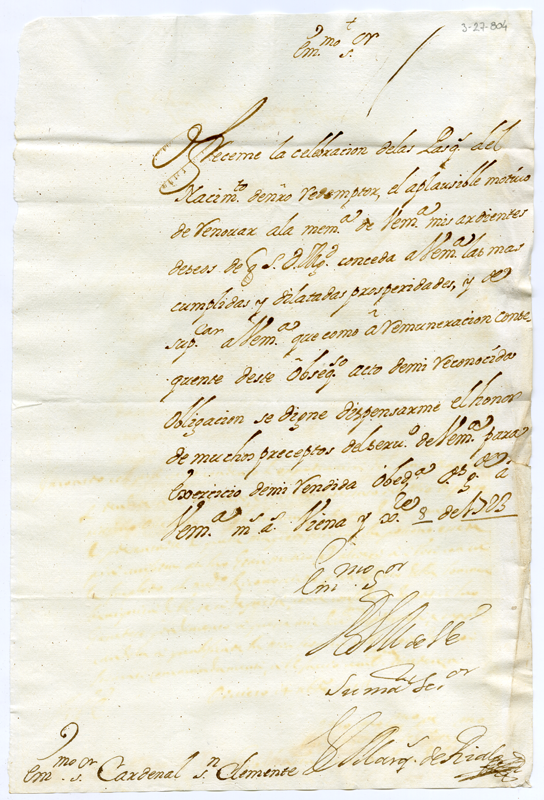 3-27-804
Em.mo s.or
Ofreceme la celebracion delas Pasq.s del
Nacim.to denro Redemptor, el aplausible motivo
de renovar ala mem.a de Vem.a mis ardientes
deseos de q S. D. Mg.d conceda a Vem.a las mas
cumplidas y dilatadas prosperidades, y de
sup.car a Vem.a que como â remuneracion conse
quente deste Obseq.so acto demi reconocida
Obligacion se digne dispensarme el honor
de muchos preceptos del seru.o de Vem.a para
Exercicio demi rendida Obed.a
Vem.a m.s a.s Viena y Xre 2 de 1722
Em.mo S.or
BLM de VE
su mas Ser.or
Em.mo s.or Cardenal s.n Clemente
El Marq.s de Rialp